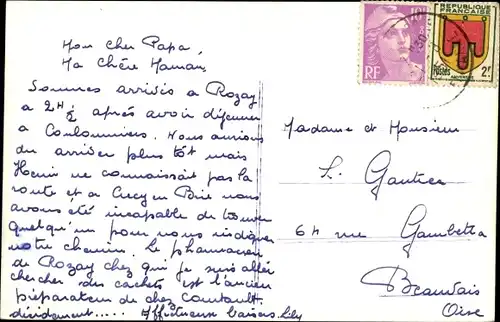 Mon cher Papa,
Ma Chère Maman,
Sommes arrivés à Rozay
à 2H ½ après avoir déjeuner
à Coulommiers. Nous aurions
du arriver plus tôt mais
Henri ne connaissait pas la
route et à Crecy en Brie nous
avons été incapable de trouver
quelqu'un pour nous indiquer
notre chemin. Le pharmacien
de Rozay chez qui je suis allée
chercher des cachets est l'ancien
préparateur de chez Coutault
décidement..... Affectueux baisers Lily
10F
RF
REPUBLIQUE
FRANCAISE
POSTES
AUVERGNE
2F
Madame et Monsieur
L. Gautier
64 rue Gambetta
Beauvais
Oise